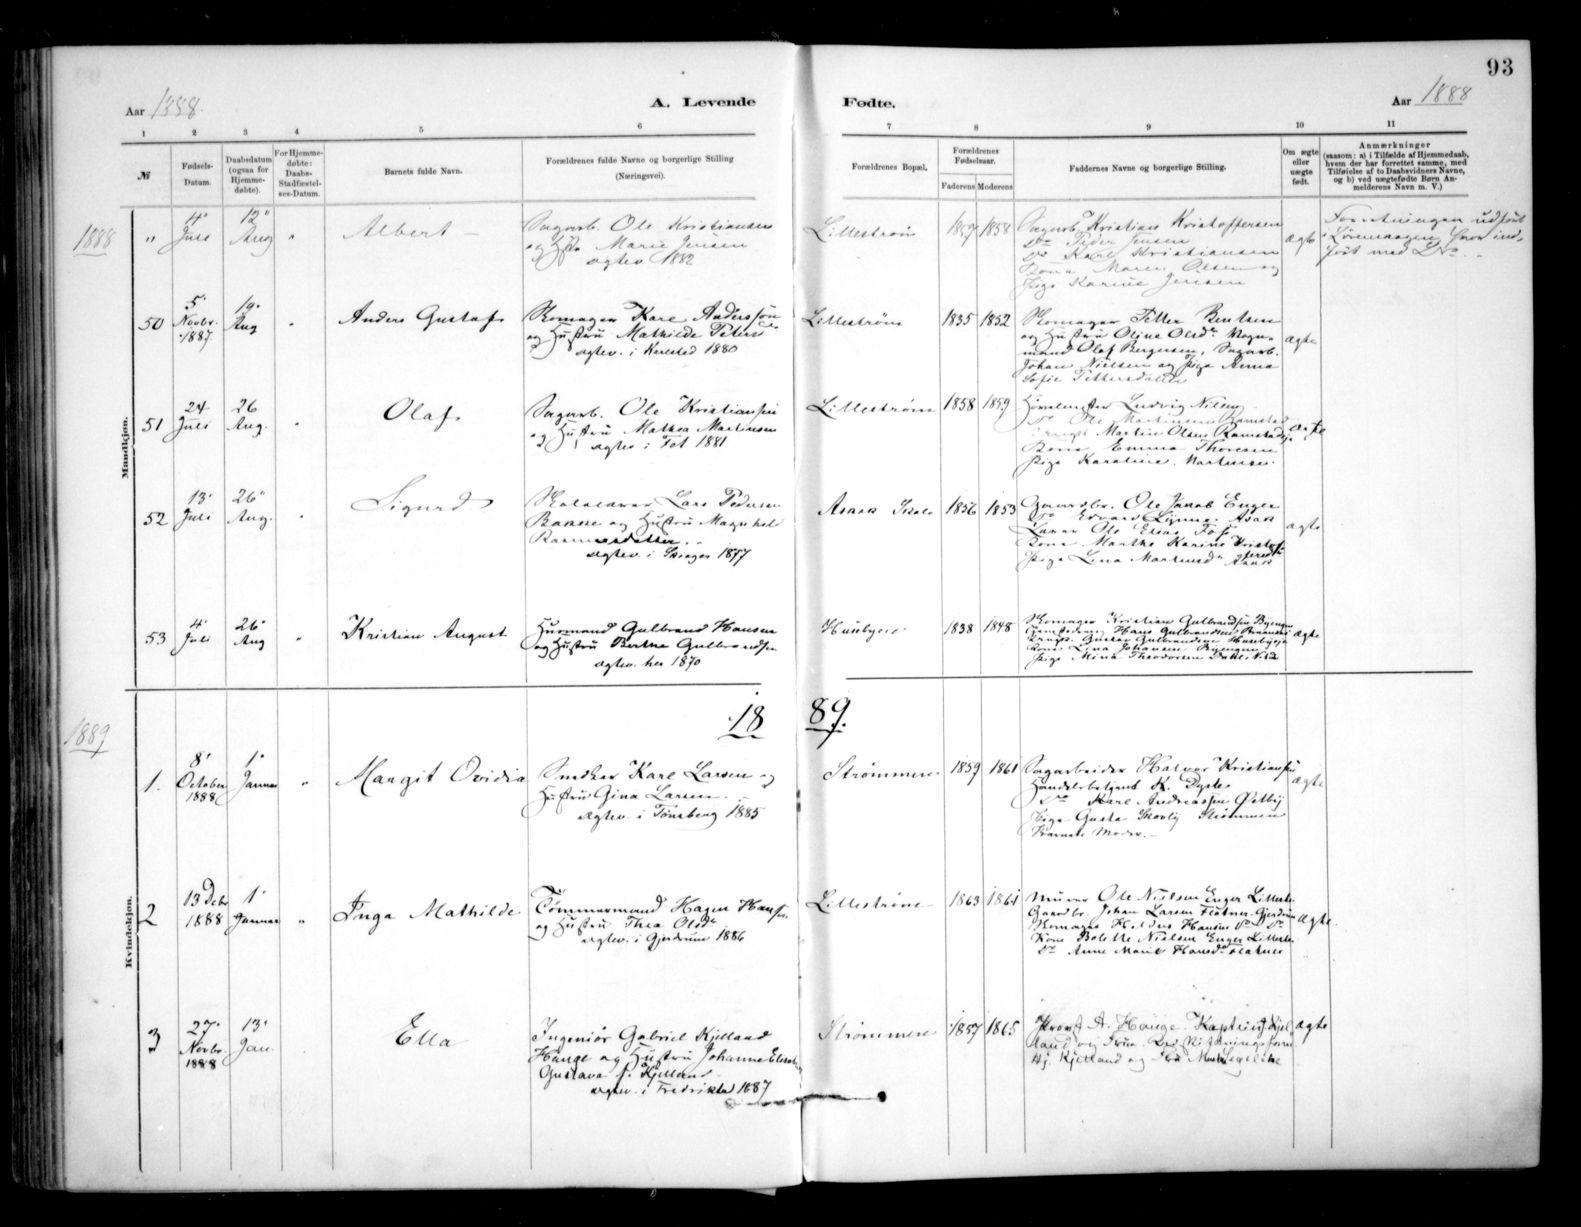 93
Aar 1888.
A. Levende
Fødte.
Aar 1888
1 2 3 4 5 6 7 8 9 10 11
№
Fødsels-Datum.
Daabsdatum (ogsaa for Hjemmedøbte).
For Hjemmedøbte: Daabs-Stadfæstelses-Datum.
Barnets fulde Navn.
Forældrenes fulde Navne og borgerlige Stilling (Næringsvei).
Forældrenes Bopæl.
Forældrenes Fødselsaar.
Faderens Moderens
Faddernes Navne og borgerlige Stilling.
Om ægte eller uægte født.
Anmærkninger
(saasom: a) i Tilfælde af Hjemmedaab,
hvem der har forrettet samme, med
Tilføielse af to Daabsvidners Navne,
og b) ved uægtefødte Børn Anmelderens Navn m. V.)
Mandkjøn.
1888
" 4' Juli 12" Aug " Albert —
Sagarb. Ole Kristiansen
og Marie Jensen
ægtev 1882
Lillestrøm 1857 1858
Sagarb. Kristian Kristoffersen
Do Peder Jensen
Do Karl Kristiansen
Kona Maren Olsen og
Pige Karine Jensen
ægte
Forretningen udført
i Lørenskogen, hvor ind-
ført med
50 5' Novbr. 1887. 19' Aug " Anders Gustaf
Skomager Karl Anderssøn
og Hustru Mathilde Peters
ægtev. i Karlstad 1880
Lillestrøm 1835 1852
Skomager Petter Bentsen
og Hustru Oline Olsdr Vogn-
mand Olaf Bergersen, Sagarb.
Johan Nielsen og Pige Anna
Sofie Pettersdatter
ægte
51 24 Juli 26 Aug. " Olaf
Sagarb. Ole Kristiansen
og Hustru Mathea Martinsen
ægtev i Fet 1881
Lillestrøm 1858 1859
Ludvig Nilsen
Do Ole Martinsen Ramstad
Martin Olsen Ramstad
Kona Emma Thoresen
Pige Karoline Martinsen
ægte
52 13' Juli 26" Aug. " Sigurd
Skolelærer Lars Pedersen
Bakke og Hustru Magnhild
Rasmusdatter.
ægtev. i Skiager 1877
Asak Skole 1856 1853
Gaardbr. Ole Jakob Enger
Do Edvard Asak
Lærer Ole Foss
Kona Marthe Karine Kristof-
fersdr
Pige Lina Martinsdr Asak
ægte
53 4' Juli 26" Aug " Kristian August
Husmand Gulbrand Hansen
og Hustru Berthe Gulbrandsen
ægtev. her 1870
Husbyeie 1838 1848
Skomager Kristian Gulbrandsen Bjengen
Hans Gulbrandsen
Gustav Gulbrandsen Husbyeie
Kone Lina Johansen Bjengen
Pige Mina Theodorsen
ægte
1889
18 89.
Kvindekjøn.
1. 8' October 1888 1' Januar " Margit Ovidia
Snedker Karl Larsen og
Hustru Gina Larsen.
ægtev. i Tønsberg 1885
Strømmen 1859 1861
Sagarbeider Halvor Kristiansen
Handelsbetjent K. Dyste
Do Karl Andreassen Østby
Pige Gusta Skovly Strømmen
Barnets Moder. —
ægte
2 13 Decbr 1888 1' Januar " Inga Mathilde
Tømmermand Hagen Hansen
og Hustru Thea Olsdr
ægtev. i Gjerdrum 1886
Lillestrøm 1863 1861
Murer Ole Nielsen Enger Lillestr.
Gaardbr. Johan Larsen Flatner Gjerdrum
Skomager Hansen Do Do
Kone Bolette Nielsen Enger Lillestr.
Do Anne Marie Hansdr Flatner
ægte.
3 27' Novbr. 1888 13' Jan. Ella
Ingeniør Gabriel Kjelland
Hauge og Hustru Johanne Elisabeth
Gustava f. Kjelland
ægtev. i Fredrikstad 1887
Strømmen 1857 1865
Provst A. Hauge. Kaptein Kjel-
land og Frue.
Kjelland og
ægte